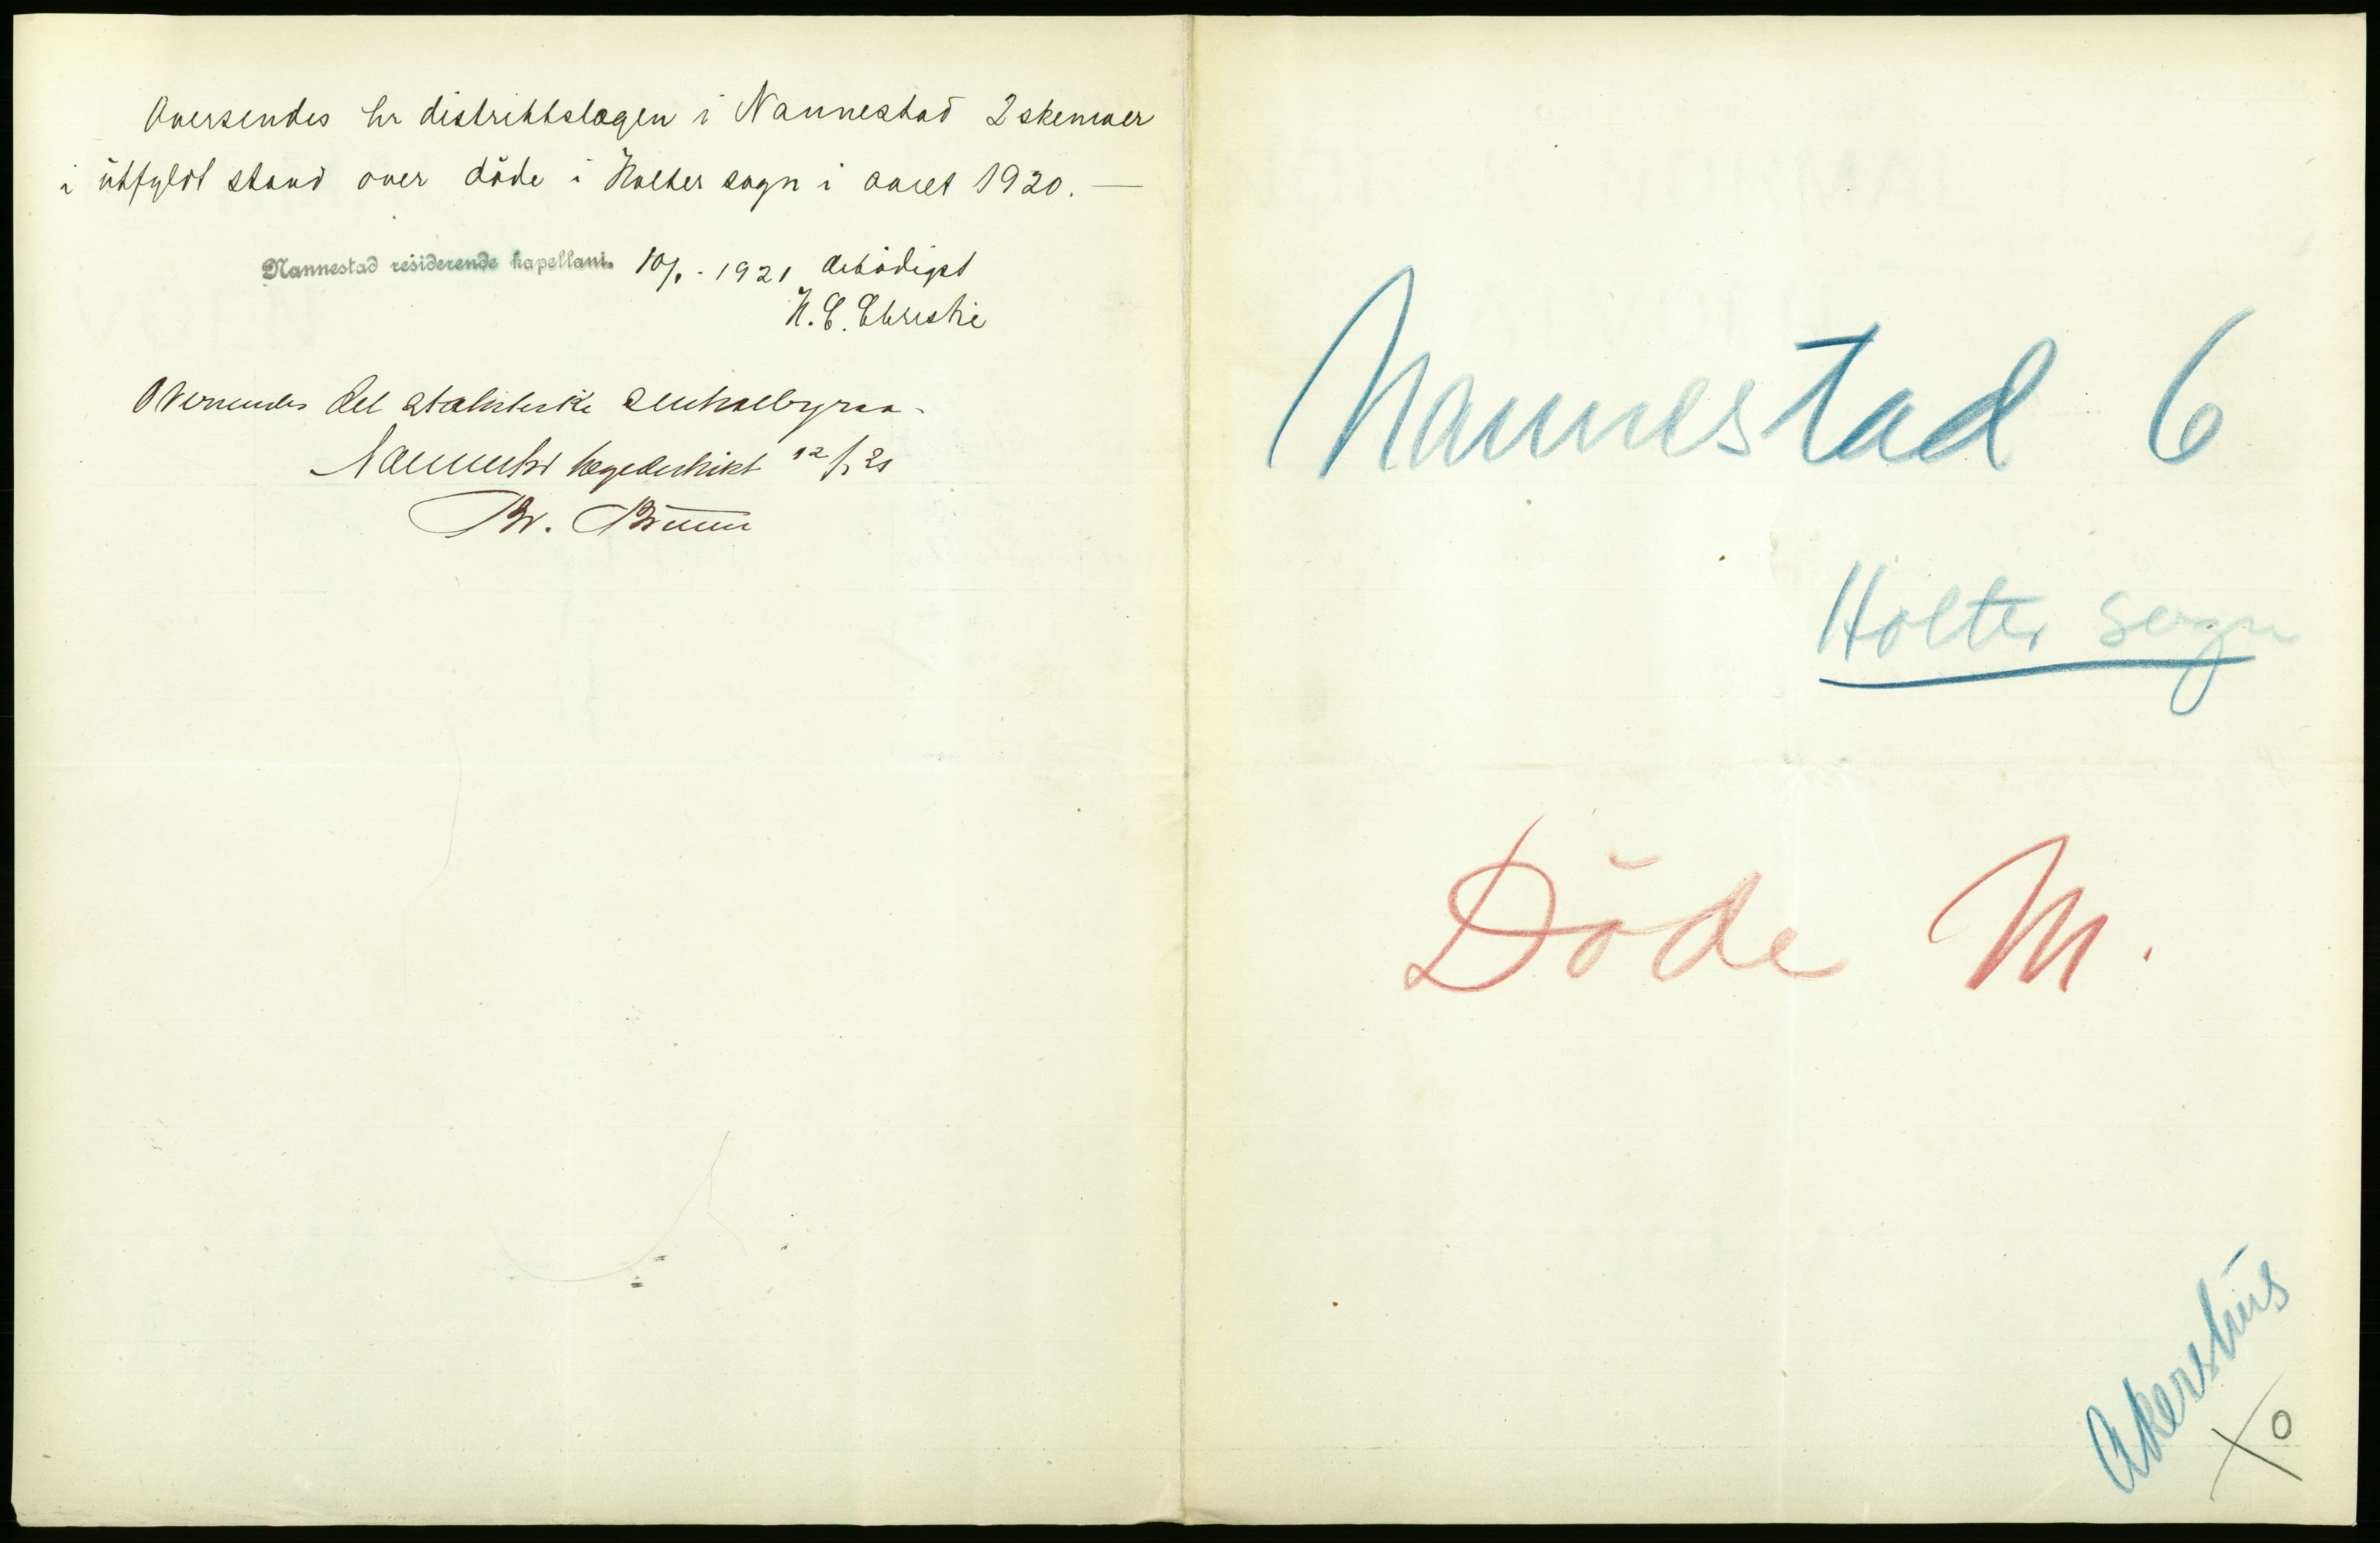 Oversendes hr distriktslægen i Nannestad 2 skemaer
i utfyldt stand over døde i Holter sogn i aaret 1920. —
Nannestad residerende kapellani. 10/1 - 1921 ærbödigst
H. C. Christie
Oversendes det statistiske centralbyraa.
Nannestad lægedistrikt 12/1 21
Br. Bruun
Nannestad 6
Holter sogn
Döde M.
Akershus
X 0